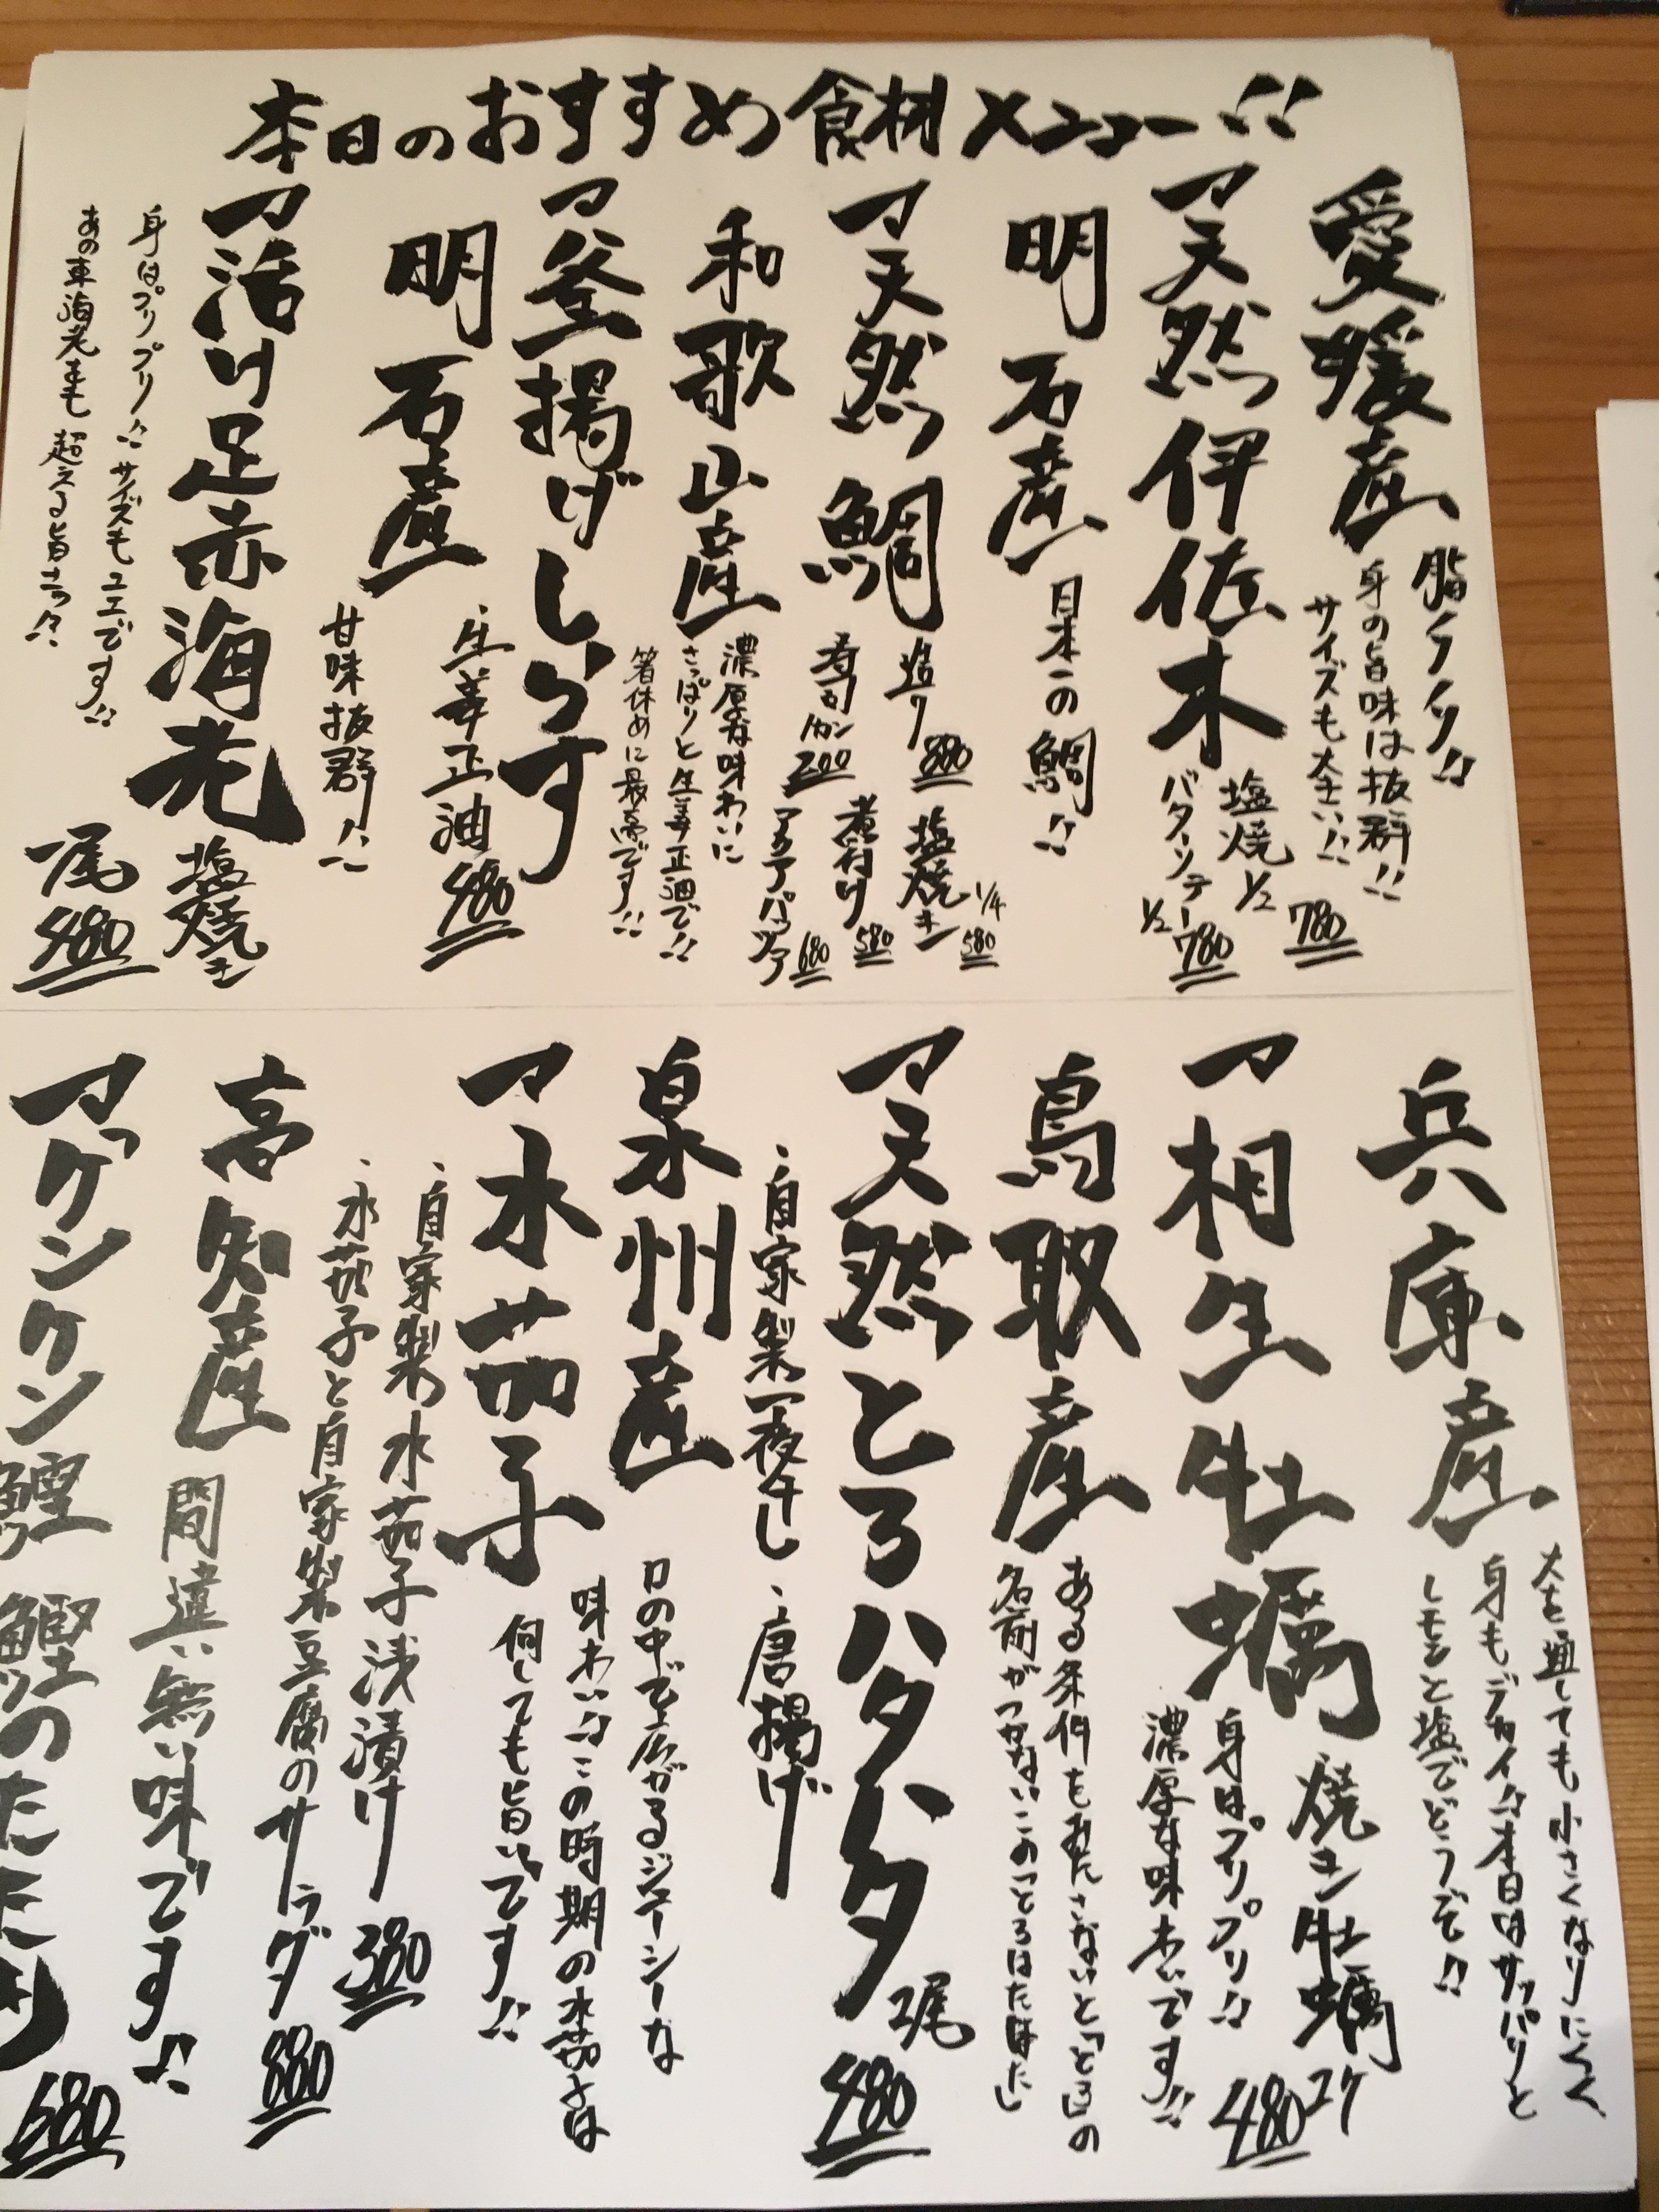 本日のおすすめ食材メニュー!!
愛媛産
脂ノリノリ!!
身の旨味は抜群!!
サイズも大きい!!
天然伊佐木
塩焼 1/2 780
バターソテー 1/2 780
明石産
日本一の鯛!!
天然鯛
造り 880
塩焼き 1/4 580
寿司 1カン 200
煮付け 580
アクアパッツァ 680
和歌山産
濃厚な味わいに
さっぱりと生姜正油で!!
箸休めに最高です!!
釜揚げしらす
生姜正油 480
明石産
甘味抜群!!
活け足赤海老
塩焼き
一尾 480
身はプリプリ!! サイズも
あの車海老をも超える旨さ
兵庫産
火を通しても小さくなりにくく、
身もデカイ!!本日はサッパリと
レモンと塩でどうぞ!!
相生牡蠣
焼き牡蠣 2ケ 480
身はプリプリ!!
濃厚な味わいです!!
鳥取産
ある条件をみたさないと「とろ」の
名前がつかないこの「とろはたはた」
天然とろハタハタ
2尾 480
・自家製一夜干し ・唐揚げ
泉州産
口の中で広がるジューシーな
味わい!!この時期の水茄子は
何しても旨いです!!
水茄子
・自家製水茄子浅漬け 380
・水茄子と自家製豆腐のサラダ 880
高知産
間違い無い味です!!
ケンケン鰹 鰹のたたき 680